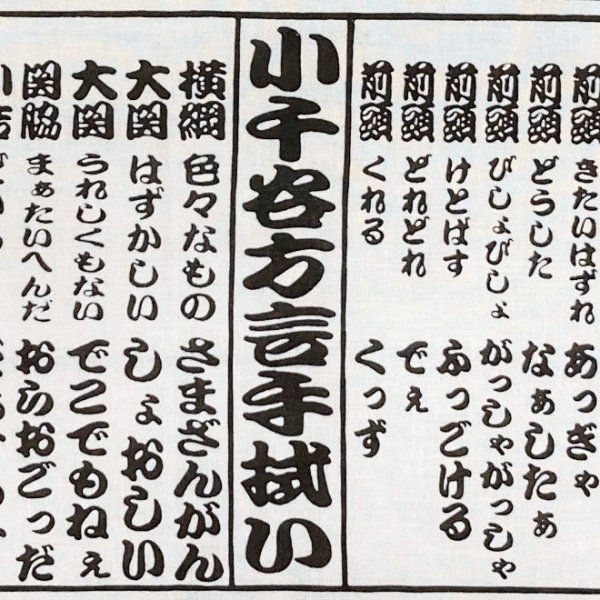 前頭 きたいはずれ あっぎゃ
前頭 どうした なぁしたぁ
前頭 びしょびしょ がっしゃがっしゃ
前頭 けとばす ふっごける
前頭 どれどれ でぇ
前頭 くれる くっず
小千谷方言手拭い
横綱 色々なもの さまざんがん
大関 はずかしい しょおしい
大関 うれしくもない でこでもねぇ
関脇 まぁたいへんだ おらおごっだ